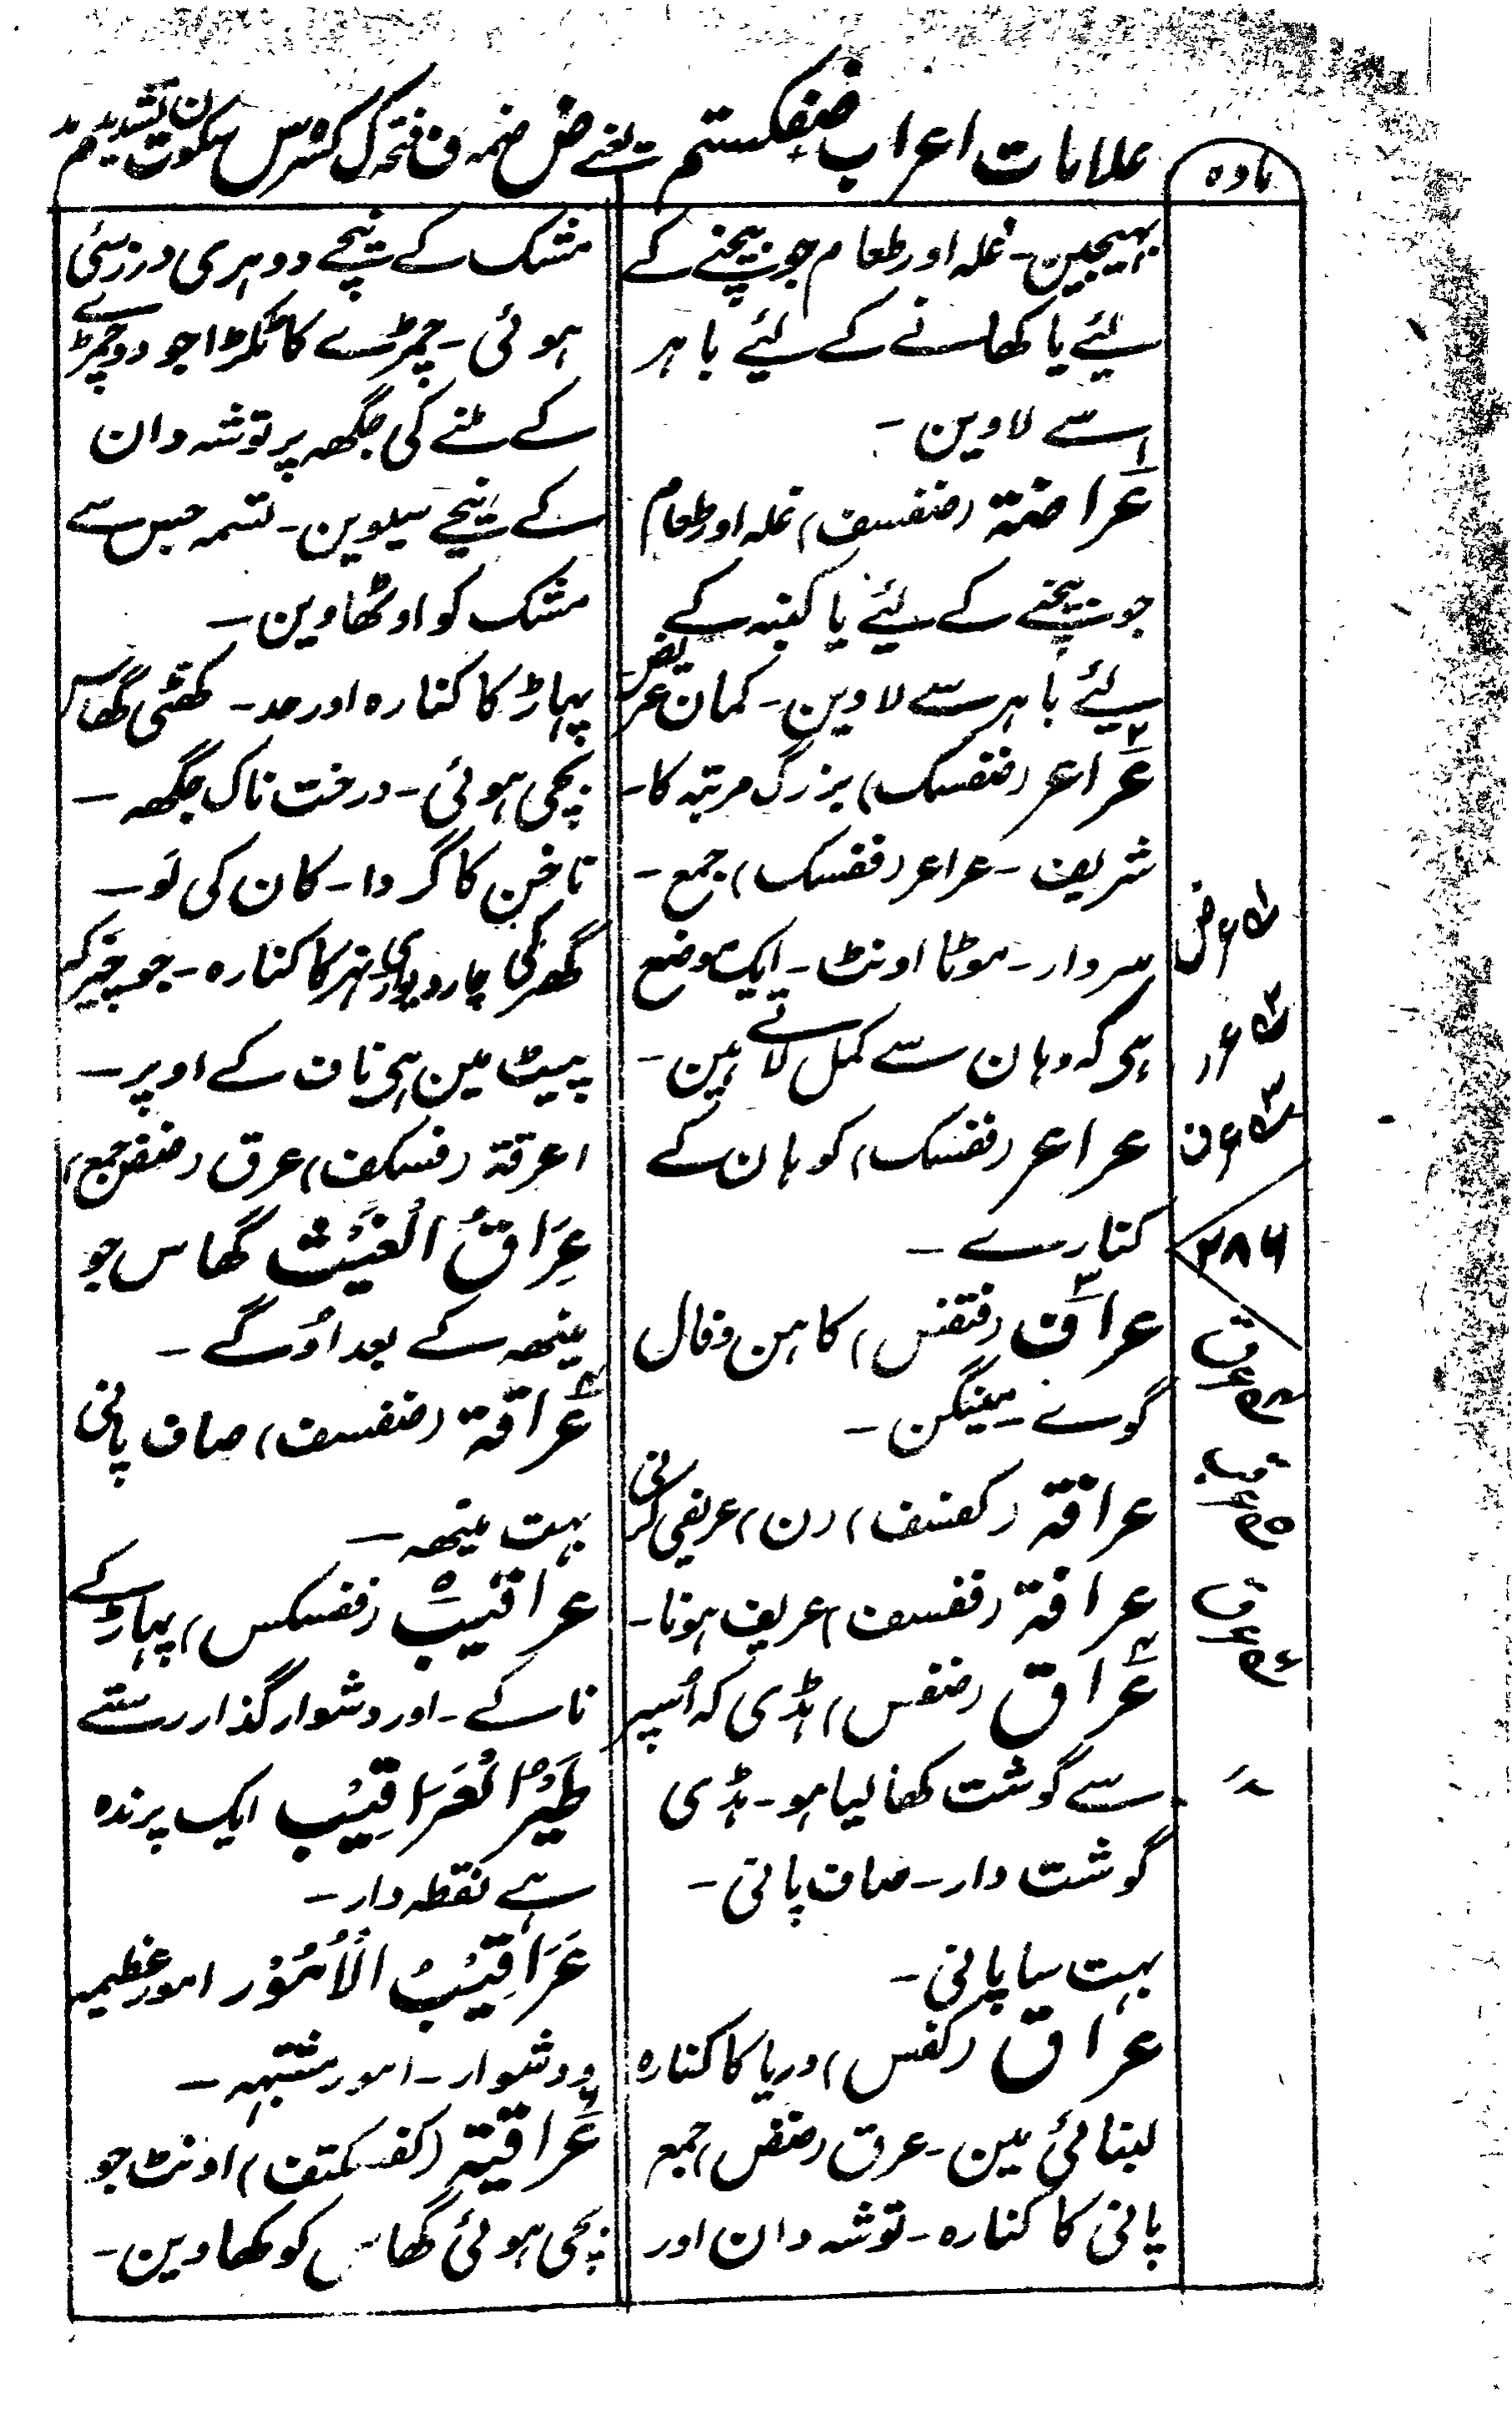 مادہ
علامات اعراب ضفکستم ت یعنے ض ضمہ ف فتحہ ک کسرہ س سکون ت تشدید م مد
بھیجین۔ غلہ اور طعام جو بیچنے کے
لیئے یا کھانے کے لیئے باہر
سے لاوین۔
عراضۃ (ضفسف) غلہ اور طعام
جو بیچنے کے لیئے یا کنبہ کے
لیئے باہر سے لاوین۔ کمان عریض
عراعر (ضفسک) بزرگ مرتبہ کا۔
شریف۔ عراعر (ففسک) جمع۔
سردار۔ موٹا اونٹ۔ ایک موضع
ہی کہ وہان سے کمل لاتے ہین۔
عراعر (ففسک) کوہان کے
کنارے۔
عراف (فتفس) کاہن و فال
گوے۔
عرافۃ (کفسف) (ن) عریفی کرنی
عرافۃ (ففسف) عریف ہونا۔
عراق (ضفس) ہڈی کہ اُسپر
سے گوشت کھا لیا ہو۔ ہڈی
گوشت دار۔ صاف پانی۔
بہت سا پانی۔
عراق (کفس) دریا کا کنارہ
لبنائی مین۔ عرق (ضفض) جمع
پانی کا کنارہ۔ توشہ دان اور
مشک کے نیچے دوہری درز سئی
ہوئی۔ چمڑے کا ٹکڑا جو دو چمڑے
کے ملنے کی جگھہ پر توشہ دان
کے نیچے سیوین۔ تسمہ جس سے
مشک کو اوٹھاوین۔
پہاڑ کا کنارہ اور حد۔ کھٹی گھاس
بچی ہوئی۔ درخت ناک جگھہ۔
ناخن کا گردا۔ کان کی لَو۔
گھر کی چار دیواری نہر کا کنارہ۔ جو چیز کہ
پیٹ مین ہی ناف کے اوپر۔
اعرقۃ (فسکف) عرق (ضفض جمع)
عِرَاقُ الْغَیْث گھاس جو
مینھہ کے بعد اُوگے۔
عراقۃ (ضفسف) صاف پانی
بہت مینھہ۔
عراقیب (ففسکس) پہاڑ کے
ناکے۔ اور دشوار گذار رستے
طَیْرُ الْعَرَاقِیْب ایک پرندہ
ہے نقطہ دار۔
عَرَاقِیْبُ الْاُمُوْر امور عظیمہ
و دشوار۔ امور مشتبہہ۔
عراقیۃ (کفسکتف) اونٹ جو
بچی ہوئی گھاس کو کھاوین۔
ع ر ض
ع ر ر
ع ر ف
۲۸۶
ع ر ق
ع ر ق ب
ع ر ق